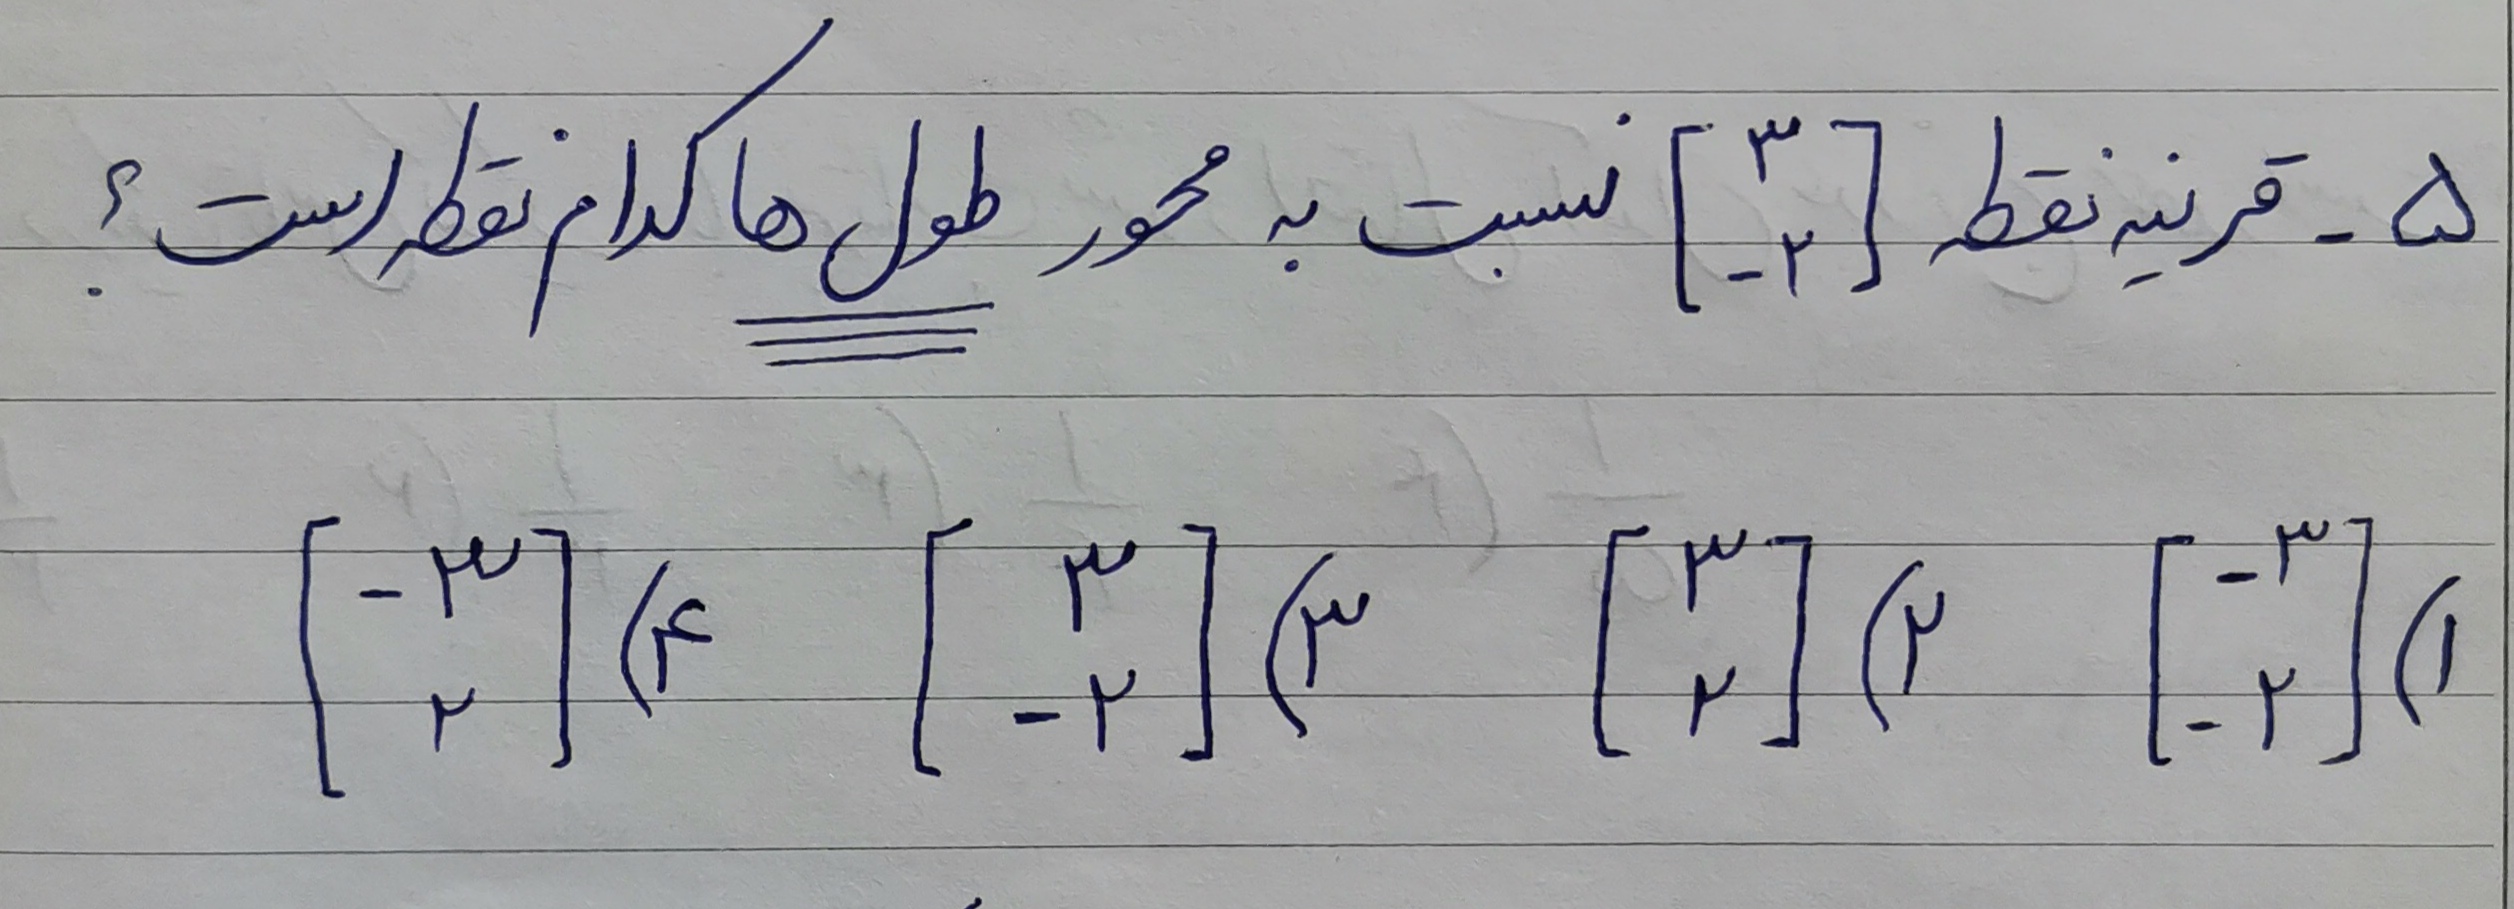 ۵ - قرینه نقطه [۳ -۲] نسبت به محور طول ها کدام نقطه است ؟
۱) [-۳ -۲] ۲) [۳ ۲] ۳) [۳ -۲] ۴) [-۳ ۲]